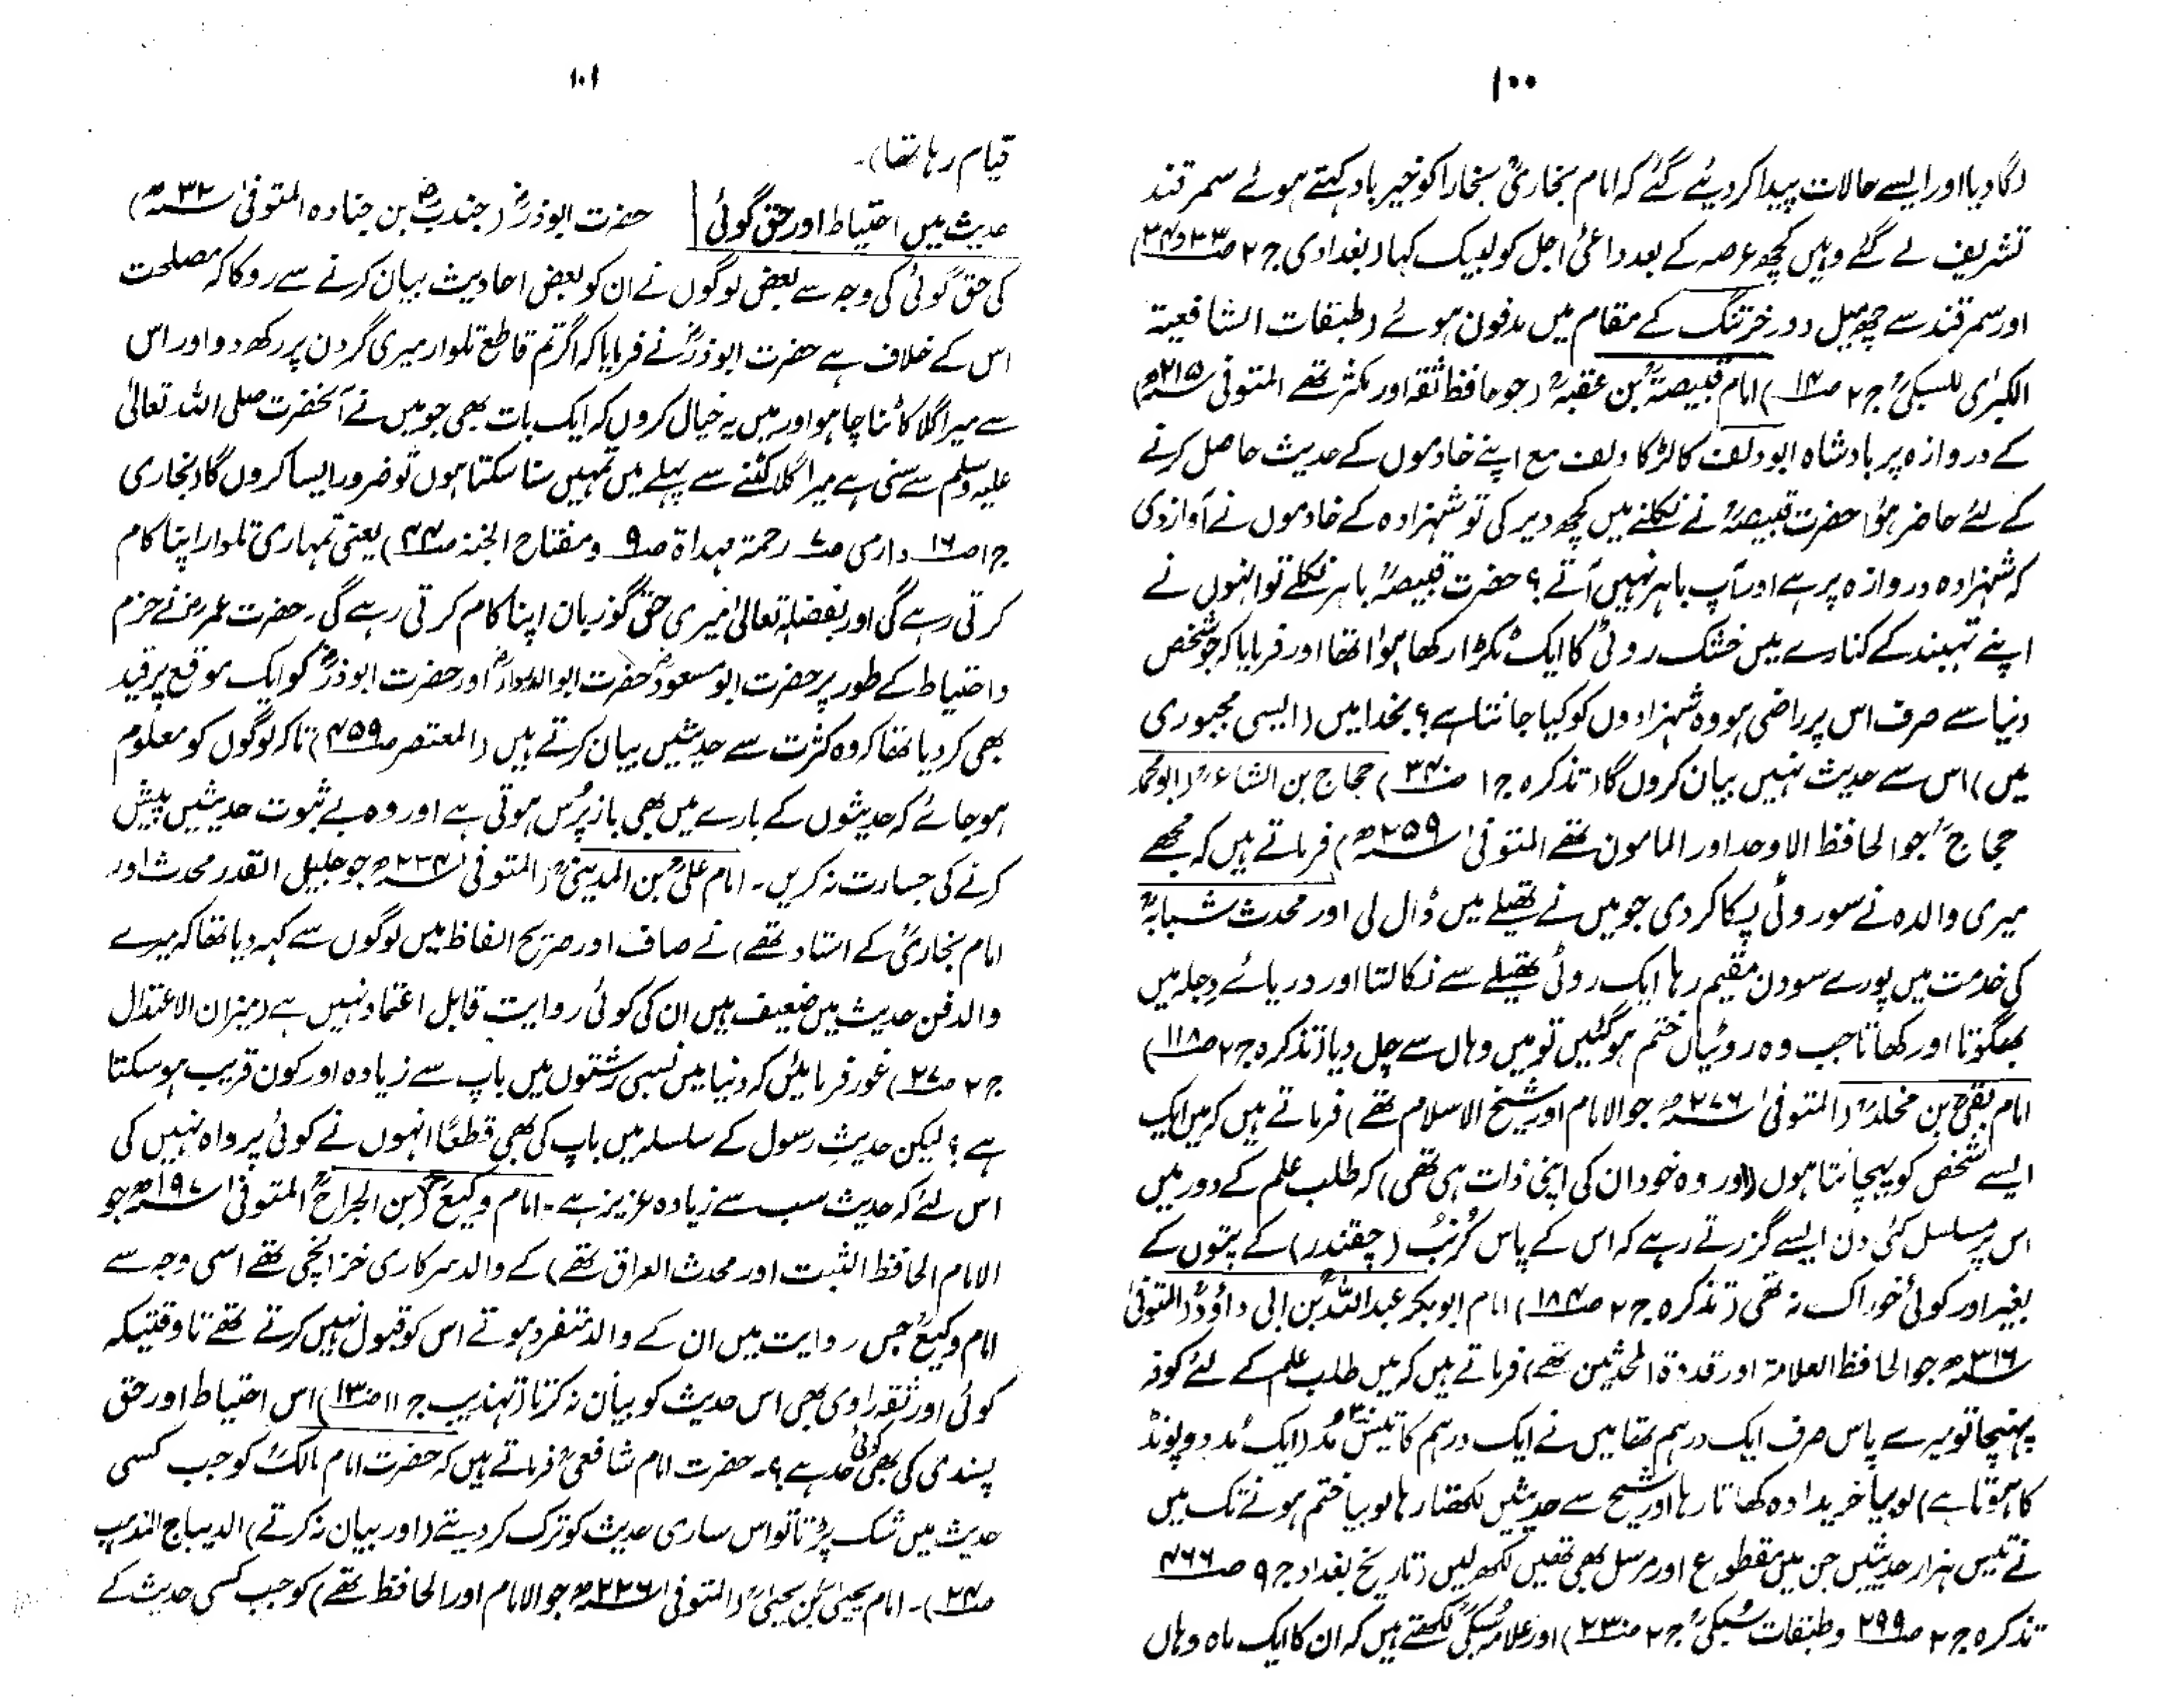 ۱۰۰
لگا دیا اور ایسے حالات پیدا کر دیئے گئے کہ امام بخاریؒ بخارا کو خیر باد کہتے ہوئے سمرقند
تشریف لے گئے وہیں کچھ عرصہ کے بعد داعیٔ اجل کو لبیک کہا (بغدادی ج ۲ ص۳۳ و ۳۴)
اور سمرقند سے چھ میل دور خرتنگ کے مقام میں مدفون ہوئے (طبقات الشافعیۃ
الکبریٰ للسبکیؒ ج ۲ ص۱۴) امام قبیصہؒ بن عقبہؒ (جو حافظ ثقہ اور مکثر تھے المتوفی ۲۱۵ھ)
کے دروازہ پر بادشاہ ابودلف کا لڑکا دلف مع اپنے خادموں کے حدیث حاصل کرنے
کے لئے حاضر ہوا حضرت قبیصہؒ نے نکلنے میں کچھ دیر کی تو شہزادہ کے خادموں نے آواز دی
کہ شہزادہ دروازہ پر ہے اور آپ باہر نہیں آتے؟ حضرت قبیصہؒ باہر نکلے تو انہوں نے
اپنے تہبند کے کنارے میں خشک روٹی کا ایک ٹکڑا رکھا ہوا تھا اور فرمایا کہ جو شخص
دنیا سے صرف اس پر راضی ہو وہ شہزادوں کو کیا جانتا ہے؟ بخدا میں (ایسی مجبوری
میں) اس سے حدیث نہیں بیان کروں گا (تذکرہ ج ۱ ص۳۴۰) حجاج بن الشاعرؒ (ابو محمد
حجاجؒ جو الحافظ الاوحد اور المامون تھے المتوفیٰ ۲۵۹ھ) فرماتے ہیں کہ مجھے
میری والدہ نے سو روٹی پکا کر دی جو میں نے تھیلے میں ڈال لی اور محدث شبابہؒ
کی خدمت میں پورے سو دن مقیم رہا ایک روٹی تھیلے سے نکالتا اور دریائے دجلہ میں
بھگوتا اور کھاتا جب وہ روٹیاں ختم ہو گئیں تو میں وہاں سے چل دیا (تذکرہ ج ۲ ص۱۱۸)
امام بقیؒ بن مخلدؒ (المتوفیٰ ۲۷۶ھ جو الامام اور شیخ الاسلام تھے) فرماتے ہیں کہ میں ایک
ایسے شخص کو پہچانتا ہوں (اور وہ خود ان کی اپنی ذات ہی تھی) کہ طلب علم کے دور میں
اس پر مسلسل کئی دن ایسے گزرتے رہے کہ اس کے پاس کُرنُب (چقندر) کے پتوں کے
بغیر اور کوئی خوراک نہ تھی (تذکرہ ج ۲ ص۱۸۴) امام ابوبکر عبداللہؒ بن ابی داؤدؒ (المتوفیٰ
۳۱۶ھ جو الحافظ العلامۃ اور قدوۃ المحدثین تھے) فرماتے ہیں کہ میں طلب علم کے لئے کوفہ
پہنچا تو میرے پاس صرف ایک درہم تھا میں نے ایک درہم کا تیس۳۰ مُد (ایک مُد دو پونڈ
کا ہوتا ہے) لوبیا خریدا وہ کھاتا رہا اور شیخ سے حدیثیں لکھتا رہا لوبیا ختم ہونے تک میں
نے تیس ہزار حدیثیں جن میں مقطوع اور مرسل بھی تھیں لکھ لیں (تاریخ بغداد ج ۹ ص۴۶۶
تذکرہ ج ۲ ص۲۹۹ و طبقات سُبکیؒ ج ۲ ص۲۳۰) اور علامہ سُبکیؒ لکھتے ہیں کہ ان کا ایک ماہ وہاں
۱۰۱
قیام رہا تھا)۔
حدیث میں احتیاط اور حق گوئی حضرت ابوذرؓ (جندبؓ بن جنادہ المتوفیٰ ۳۲ھ)
کی حق گوئی کی وجہ سے بعض لوگوں نے ان کو بعض احادیث بیان کرنے سے روکا کہ مصلحت
اس کے خلاف ہے حضرت ابوذرؓ نے فرمایا کہ اگر تم قاطع تلوار میری گردن پر رکھ دو اور اس
سے میرا گلا کاٹنا چاہو اور میں یہ خیال کروں کہ ایک بات بھی جو میں نے آنحضرت صلی اللہ تعالیٰ
علیہ وسلم سے سنی ہے میرا گلا کٹنے سے پہلے میں تمہیں سنا سکتا ہوں تو ضرور ایسا کروں گا (بخاری
ج ۱ ص۱۶ دارمی ص۷ رحمۃ مہداۃ ص۹ و مفتاح الجنۃ ص۴۴) یعنی تمہاری تلوار اپنا کام
کرتی رہے گی اور بفضلہ تعالیٰ میری حق گو زبان اپنا کام کرتی رہے گی۔ حضرت عمرؓ نے حزم
و احتیاط کے طور پر حضرت ابو مسعودؓ حضرت ابوالدرداءؓ اور حضرت ابوذرؓ کو ایک موقع پر قید
بھی کر دیا تھا کہ وہ کثرت سے حدیثیں بیان کرتے ہیں (المعتصر ص۴۵۹) تاکہ لوگوں کو معلوم
ہو جائے کہ حدیثوں کے بارے میں بھی باز پُرس ہوتی ہے اور وہ بے ثبوت حدیثیں پیش
کرنے کی جسارت نہ کریں۔ امام علیؒ بن المدینیؒ (المتوفی ۲۳۴ھ جو جلیل القدر محدث اور
امام بخاریؒ کے استاد تھے) نے صاف اور صریح الفاظ میں لوگوں سے کہہ دیا تھا کہ میرے
والد فن حدیث میں ضعیف ہیں ان کی کوئی روایت قابل اعتماد نہیں ہے (میزان الاعتدال
ج ۲ ص۲۷) غور فرمائیں کہ دنیا میں نسبی رشتوں میں باپ سے زیادہ اور کون قریب ہو سکتا
ہے؟ لیکن حدیثِ رسول کے سلسلہ میں باپ کی بھی قطعًا انہوں نے کوئی پرواہ نہیں کی
اس لئے کہ حدیث سب سے زیادہ عزیز ہے۔ امام وکیعؒ (بن الجراحؒ المتوفیٰ ۱۹۷ھ جو
الامام الحافظ الثبت اور محدث العراق تھے) کے والد سرکاری خزانچی تھے اسی وجہ سے
امام وکیعؒ جس روایت میں ان کے والد متفرد ہوتے اس کو قبول نہیں کرتے تھے تاوقتیکہ
کوئی اور ثقہ راوی بھی اس حدیث کو بیان نہ کرتا (تہذیب ج ۱۱ ص۱۳۰) اس احتیاط اور حق
پسندی کی بھی کوئی حد ہے؟۔ حضرت امام شافعیؒ فرماتے ہیں کہ حضرت امام مالکؒ کو جب کسی
حدیث میں شک پڑتا تو اس ساری حدیث کو ترک کر دیتے (اور بیان نہ کرتے) الدیباج المذہب
ص۲۴)۔ امام یحییٰؒ بن یحییٰؒ (المتوفی ۲۲۶ھ جو الامام اور الحافظ تھے) کو جب کسی حدیث کے